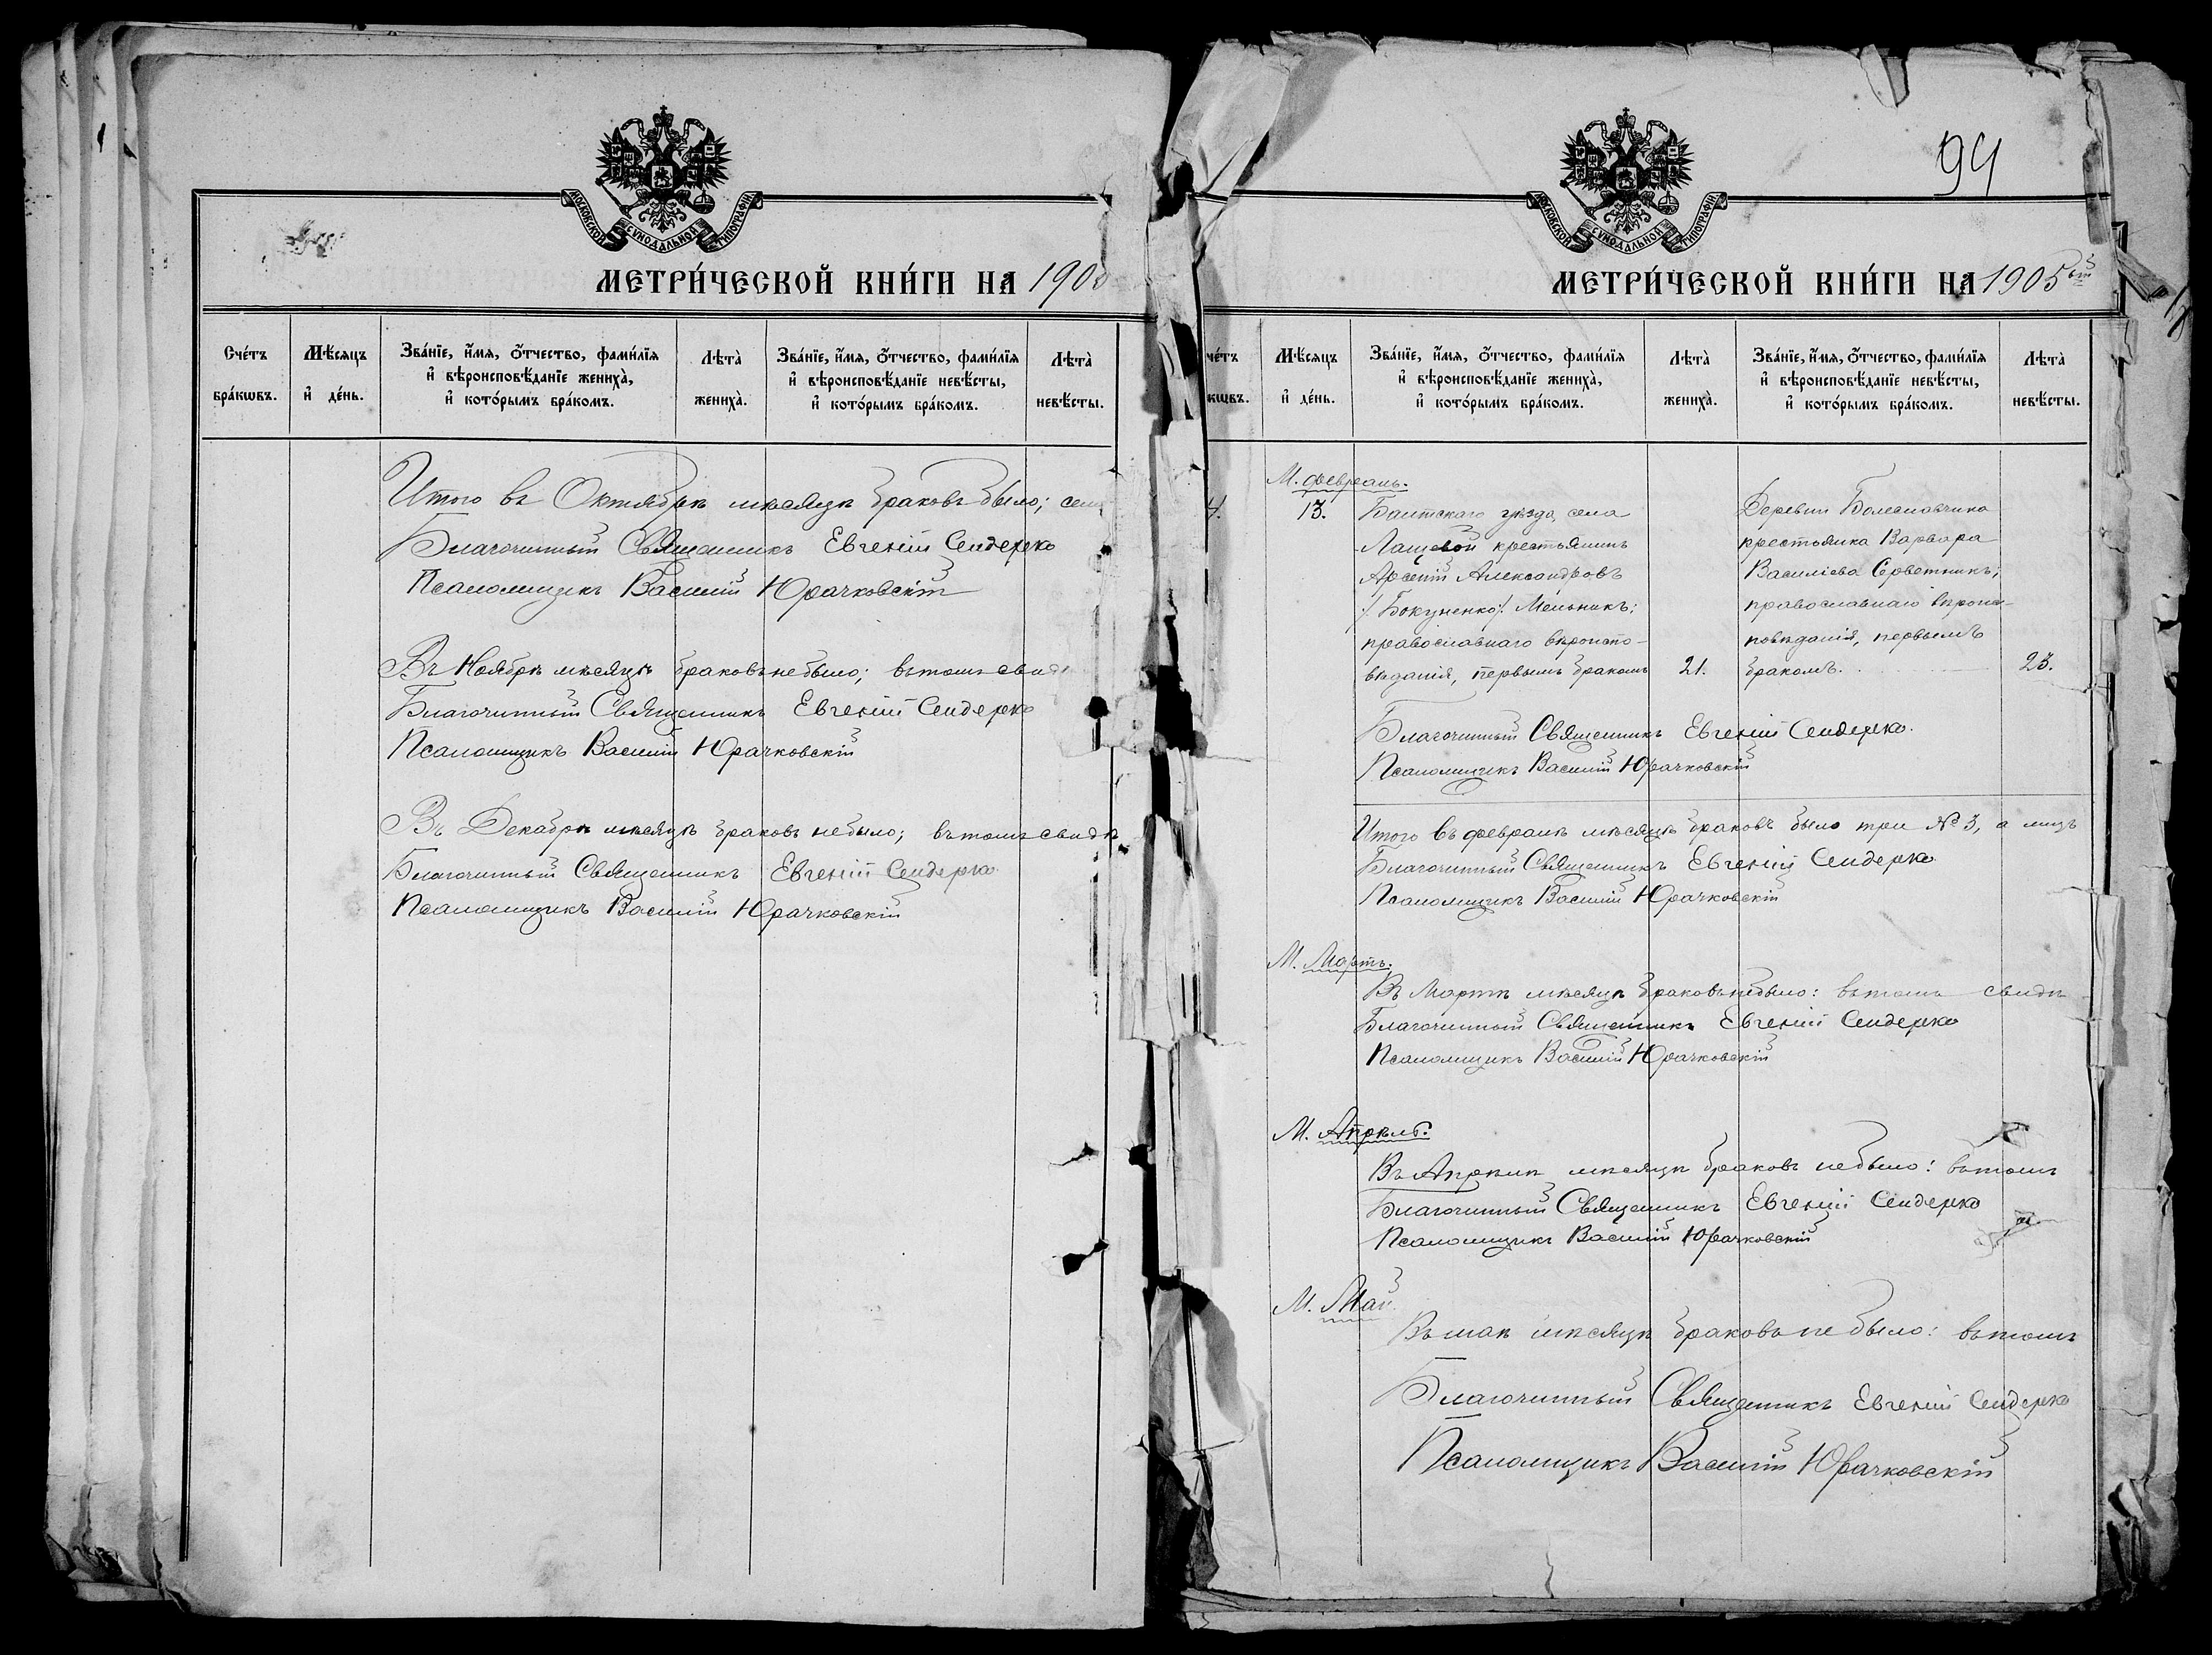 МОСКОВСКОЙ СѴНОДАЛЬНОЙ ТИПОГРАФІИ
МЕТРИ́ЧЕСКОЙ КНИ́ГИ НА 190
Сче́тъ бра́кѡвъ.
Мѣ́сяцъ и҆ де́нь.
Зва́нїе, и҆́мя, ѻ҆́тчество, фами́лїя
и҆ вѣроисповѣ́данїе жениха̀,
и҆ кото́рымъ бра́комъ.
Лѣта̀ жениха̀.
Зва́нїе, и҆́мя, ѻ҆́тчество, фами́лїя
и҆ вѣроисповѣ́данїе невѣ́сты,
и҆ кото́рымъ бра́комъ.
Лѣта̀ невѣ́сты.
Итого въ Октябрѣ мѣсяцѣ браковъ было;
Благочинный Священникъ Евгеній Сендерко
Псаломщикъ Василій Юрачковскій
Въ Ноябрѣ мѣсяцѣ браковъ не было; въ томъ
Благочинный Священникъ Евгеній Сендерко
Псаломщикъ Василій Юрачковскій
Въ Декабрѣ мѣсяцѣ браковъ не было; въ томъ свидѣ
Благочинный Священникъ Евгеній Сендерко
Псаломщикъ Василій Юрачковскій
94
МОСКОВСКОЙ СѴНОДАЛЬНОЙ ТИПОГРАФІИ
МЕТРИ́ЧЕСКОЙ КНИ́ГИ НА 1905 ый
че́тъ кѡвъ.
Мѣ́сяцъ и҆ де́нь.
Зва́нїе, и҆́мя, ѻ҆́тчество, фами́лїя
и҆ вѣроисповѣ́данїе жениха̀,
и҆ кото́рымъ бра́комъ.
Лѣта̀ жениха̀.
Зва́нїе, и҆́мя, ѻ҆́тчество, фами́лїя
и҆ вѣроисповѣ́данїе невѣ́сты,
и҆ кото́рымъ бра́комъ.
Лѣта̀ невѣ́сты.
М. февраль.
4.
13.
Балтскаго уѣзда, села
Лащевой крестьянинъ
Арсеній Александровъ
/Бокуненко/. Мельникъ;
православнаго вѣроиспо-
вѣданія, первымъ бракомъ
21.
Деревни Болеславчика
крестьянка Варвара
Василіева
православнаго вѣроис-
повѣданія, первымъ
бракомъ.
23.
Благочинный Священникъ Евгеній Сендерко.
Псаломщикъ Василій Юрачковскій
Итого въ февралѣ мѣсяцѣ браковъ было три № 3, а лицъ
Благочинный Священникъ Евгеній Сендерко
Псаломщикъ Василій Юрачковскій
М. Мартъ.
Въ Мартѣ мѣсяцѣ браковъ не было: въ томъ свидѣ
Благочинный Священникъ Евгеній Сендерко
Псаломщикъ Василій Юрачковскій
М. Апрѣль.
Въ Апрѣлѣ мѣсяцѣ браковъ не было: въ томъ
Благочинный Священникъ Евгеній Сендерко
Псаломщикъ Василій Юрачковскій
М. Май
Въ маѣ мѣсяцѣ браковъ не было: въ томъ
Благочинный Священникъ Евгеній Сендерко
Псаломщикъ Василій Юрачковскій